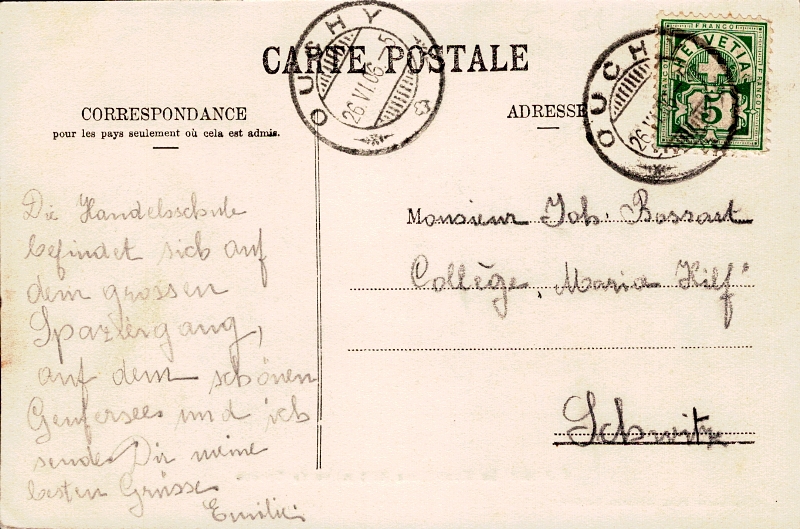 CARTE POSTALE
CORRESPONDANCE
pour les pays seulement où cela est admis.
ADRESSE
OUCHY
26.VI.06.-5
OUCHY
26.VI.06
FRANCO
HELVETIA
FRANCO
FRANCO
5
Die Handelsschule
befindet sich auf
dem grossen
Spaziergang,
auf dem schönen
Genfersees und ich
sende Dir meine
besten Grüsse
Emilie
Monsieur Joh. Bossart
Collège, Maria Hilf
Schwitz